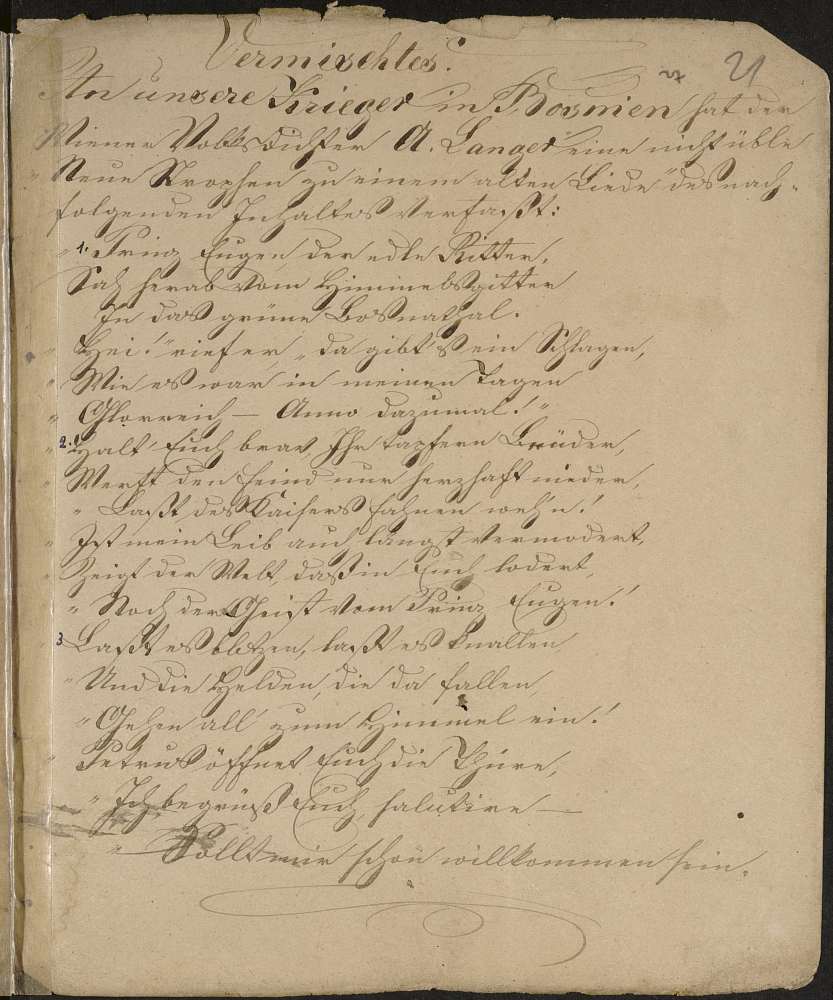 Vermischtes.
21
An unsere Krieger in Bosnien hat der
Wiener Volksdichter A. Langer eine nicht üble
„Neue Strophen zu einem alten Liede" des nach-
folgenden Inhaltes verfaßt:
„1. Prinz Eugen, der edle Ritter,
Sah herab vom Himmelsgitter
In das grüne Bosnathal.
„Hei!" rief er, „da gibt's ein Schlagen,
„Wie es war in meinen Tagen
„Glorreich — Anno dazumal!"
„2. Halt' Euch brav, Ihr tapfern Brüder,
„Werft den Feind nur herzhaft nieder,
„Laßt des Kaisers Fahnen weh'n!
„Ist mein Leib auch längst vermodert,
„Zeigt der Welt, daß in Euch lodert,
„Noch der Geist vom Prinz Eugen!
„3 Laßt es blitzen, laßt es knallen
„Und die Helden, die da fallen,
„Gehen all' zum Himmel ein!
„Petrus öffnet Euch die Thüre,
„Ich begrüß' Euch, salutire —
„Sollt mir schön willkommen sein.